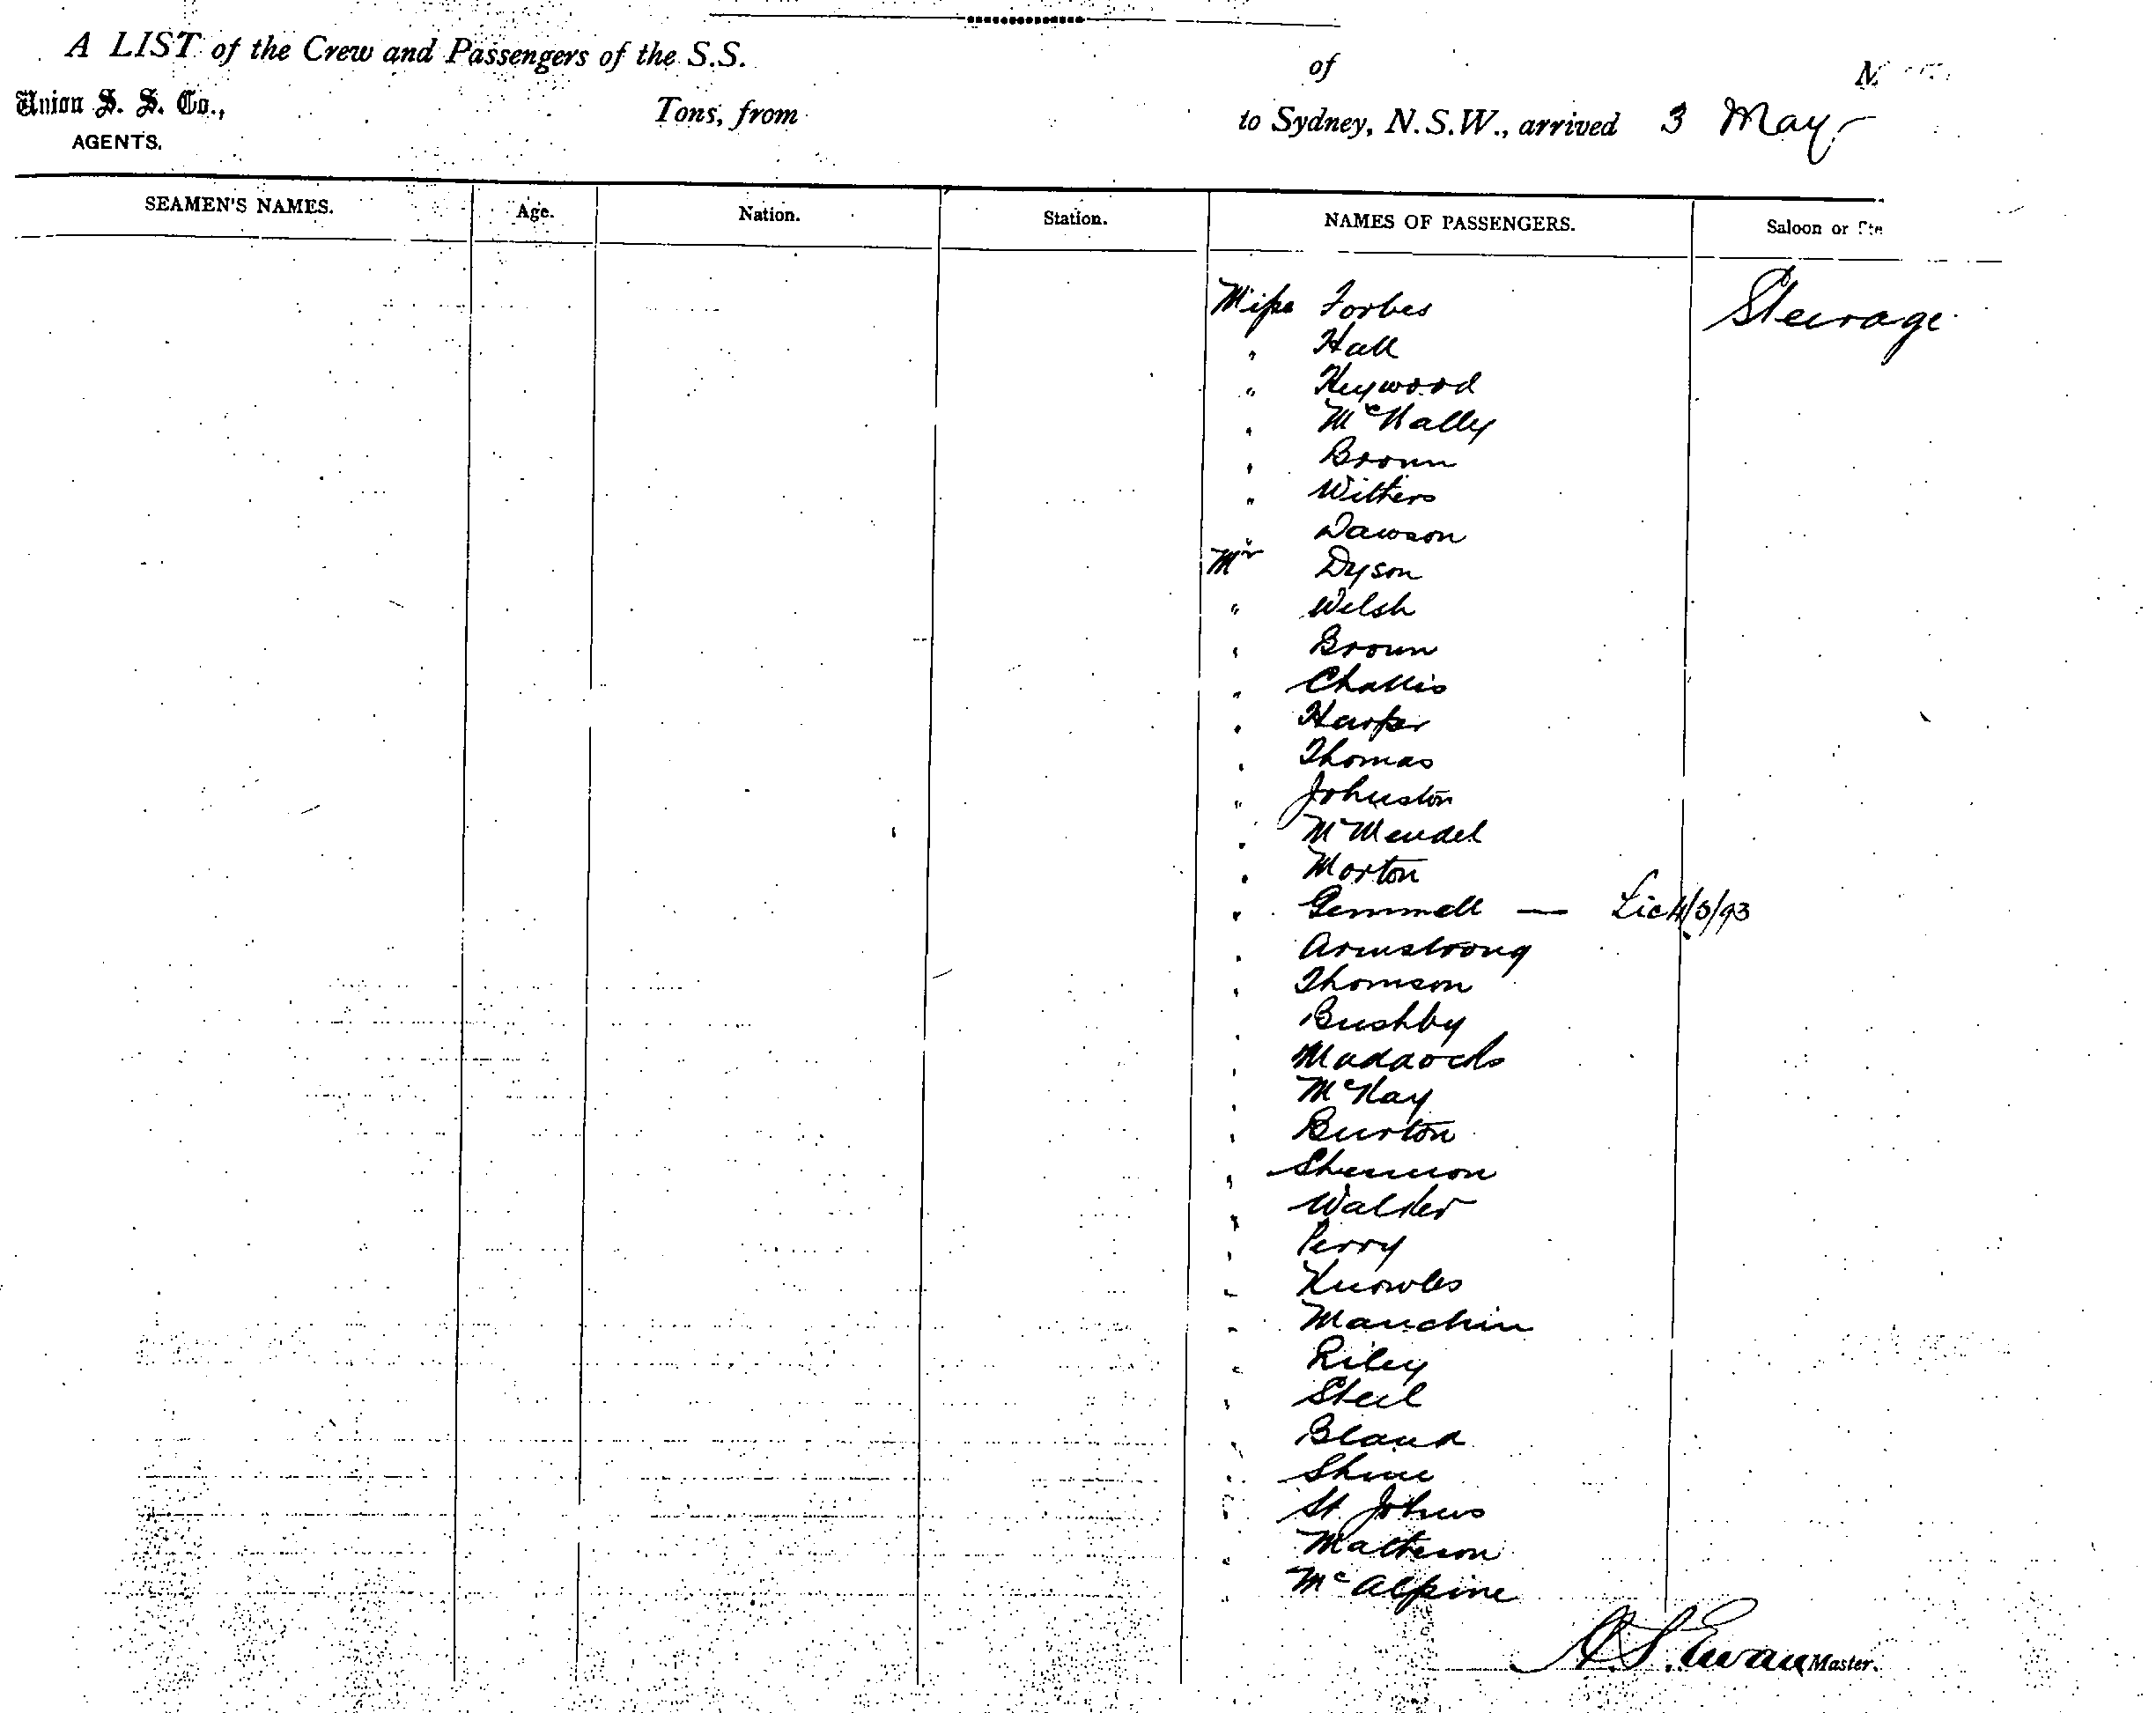 A LIST of the Crew and Passengers of the S.S. of M
Union S. S. Co.,
AGENTS.
Tons, from to Sydney, N.S.W., arrived 3 May
SEAMEN'S NAMES. Age. Nation. Station. NAMES OF PASSENGERS. Saloon or Ste
Miss Forbes Steerage
" Hall
" Heywood
" McNally
" Brown
" Withers
" Dawson
Mr Dyson
" Welsh
" Brown
" Challis
" Harper
" Thomas
" Johnston
" Morton
" Gemmell — Lic 4/5/93
" Armstrong
" Thomson
" Bushby
" Maddocks
" McKay
" Burton
" Shannon
" Walker
" Perry
" Knowles
" Manchin
" Riley
" Steel
" Bland
" Shine
" St Johns
" Matheson
" McAlpine
Master.